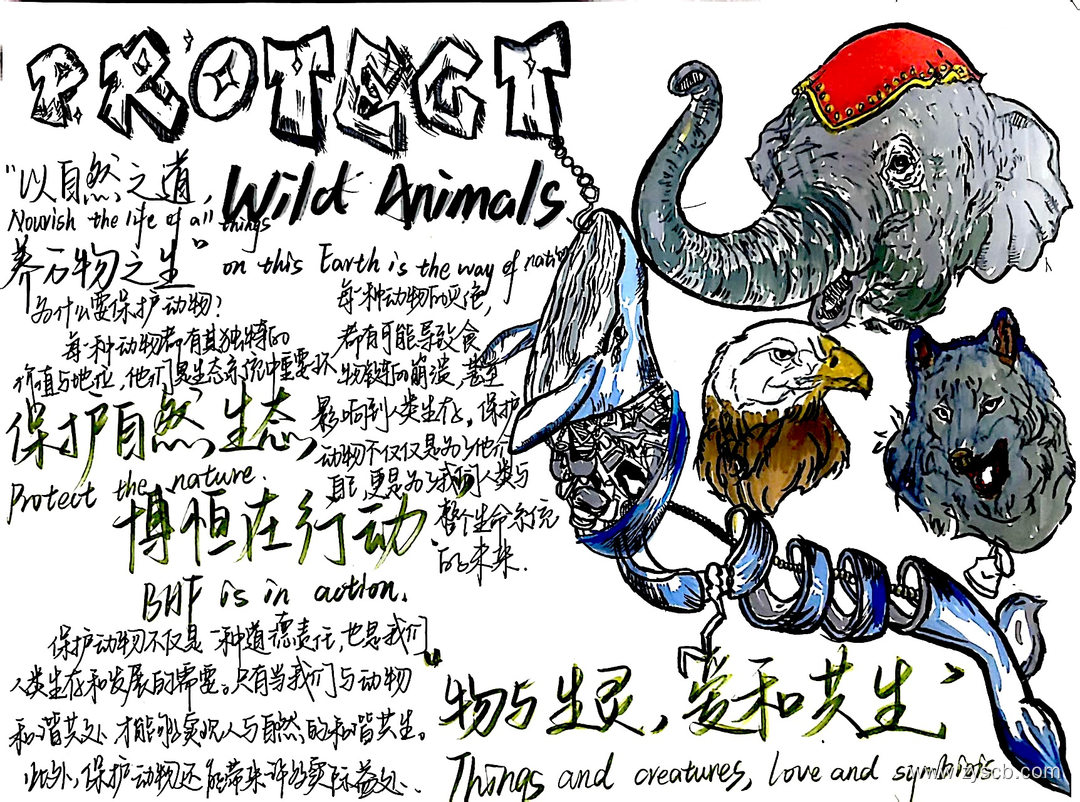 PROTECT
Wild Animals
"以自然之道,
Nourish the life of all things
养万物之生"
on this Earth is the way of nature
为什么要保护动物?
每一种动物都有其独特的
价值与地位,他们是生态系统中重要环
每一种动物的灭绝,
都有可能导致食
物链的崩溃,甚至
影响到人类生存,保护
动物不仅仅是为了他们
自己,更是为了我们人类与
整个生命系统
的未来.
保护自然生态,
Protect the nature.
博恒在行动"
BHF is in action.
保护动物不仅是一种道德责任,也是我们
人类生存和发展的需要。只有当我们与动物
和谐共处、才能够实现人与自然的和谐共生。
此外,保护动物还能带来许多实际益处.
"物与生灵,爱和共生"
Things and creatures, love and symbiosis
www.zyscb.com